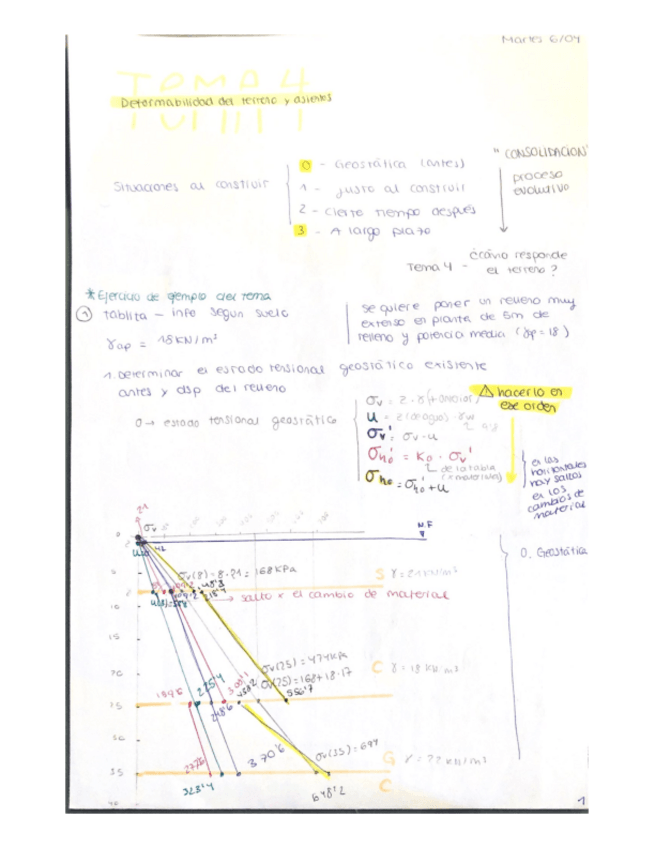 Martes 6/04
TEMA 4
Deformabilidad del terreno y asientos
Situaciones al construir
0 - Geostática (antes)
1 - justo al construir
2 - cierto tiempo después
3 - A largo plazo
"CONSOLIDACION"
proceso
evolutivo
Tema 4 - ¿cómo responde
el terreno?
*Ejercicio de ejemplo del tema
① tablita - info según suelo
γap = 18 KN/m²
se quiere poner un relleno muy
extenso en planta de 5m de
relleno y potencia media (γp = 18)
1. Determinar el estado tensional geostático existente
antes y dsp del relleno
0 → estado tensional geostático
σv = z · γ (+ anterior)
u = z (de agua) · γw
σv' = σv - u
σh0' = K0 · σv'
de la tabla
(≠ materiales)
σh0 = σh0' + u
⚠ hacerlo en
ese orden
en las
horizontales
hay saltos
en los
cambios de
material
21
σv
0
N.F
0. Geostática
σv(8) = 8·21 = 168 KPa
S γ = 21 KN/m³
→ salto x el cambio de material
10
15
20
σv(25) = 474 KPa
σv(25) = 168 + 18·17
C γ = 18 KN/m³
556'7
25
30
σv(35) = 694
G γ = 22 KN/m³
35
370'6
323'4
648'2
C
40
1